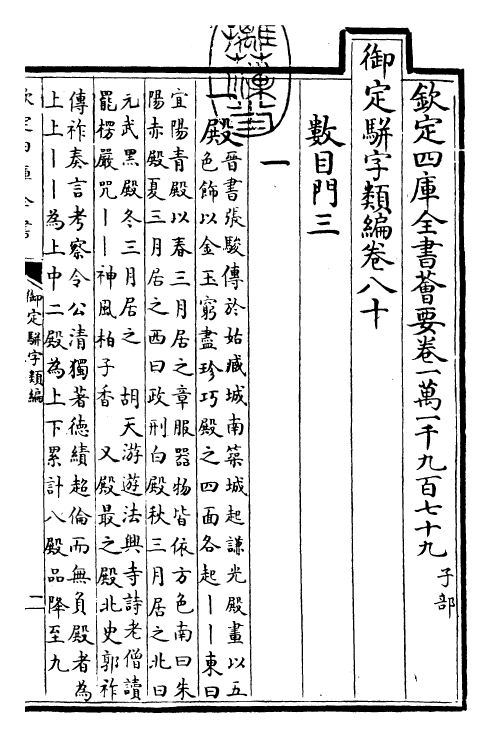 欽定四庫全書薈要卷一萬一千九百七十九 子部
御定駢字類編卷八十
數目門三
一
一殿 晉書張駿傳於姑臧城南築城起謙光殿畫以五
色飾以金玉窮盡珍巧殿之四面各起丨丨東曰
宜陽青殿以春三月居之章服器物皆依方色南曰朱
陽赤殿夏三月居之西曰政刑白殿秋三月居之北曰
元武黑殿冬三月居之 胡天游遊法興寺詩老僧讀
罷楞嚴咒丨丨神風柏子香 又殿最之殿北史郭祚
傳祚奏言考察令公清獨著德績超倫而無負殿者為
上上丨丨為上中二殿為上下累計八殿品降至九
欽定四庫全書
御定駢字類編
二